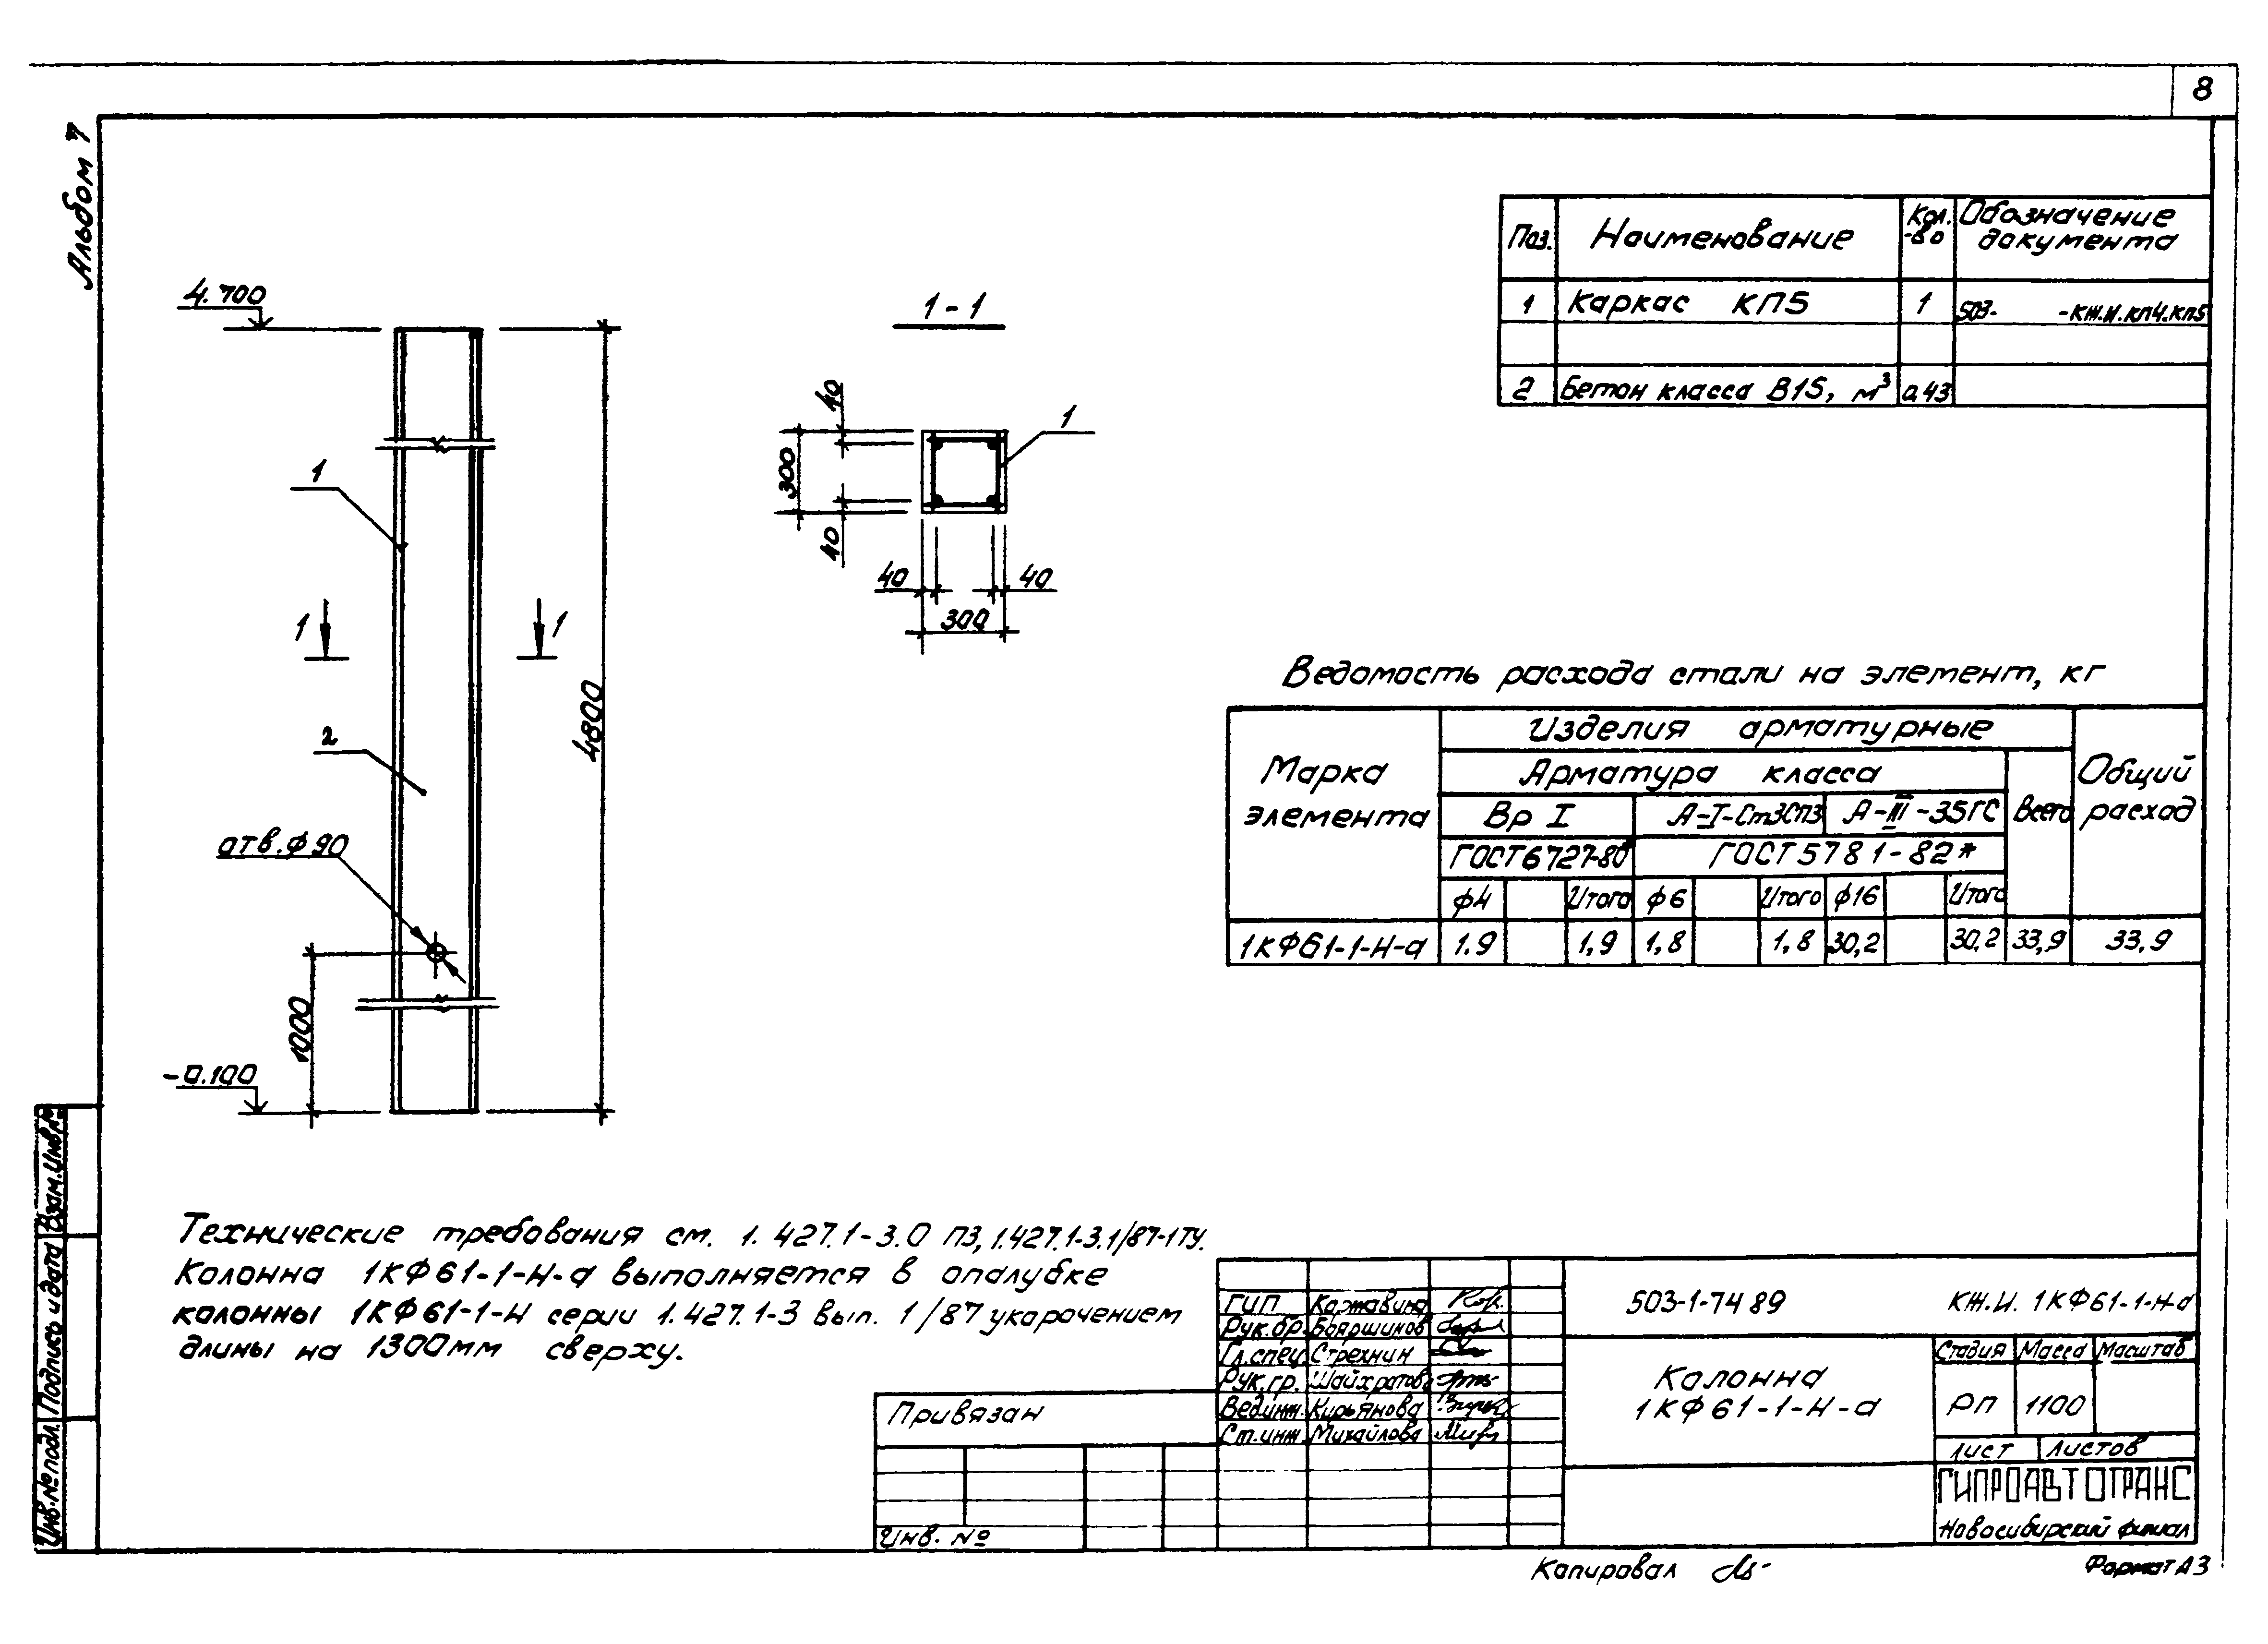 8
Альбом 7
4.700
1
1
1
2
отв.ф90
1000
-0.100
4800
1-1
1
40
300
40
40
40
300
Поз.
Наименование
Кол.
-во
Обозначение
документа
1
Каркас КП5
1
503- -КЖ.И.КП4.КП5
2
Бетон класса В15, м³
0,43
Ведомость расхода стали на элемент, кг
Марка
элемента
Изделия арматурные
Арматура класса
Общий
расход
Вр I
А-I-Ст3СП3
А-III-35ГС
Всего
ГОСТ6727-80*
ГОСТ5781-82*
ф4
Итого
ф6
Итого
ф16
Итого
1КФ61-1-Н-а
1.9
1,9
1,8
1,8
30,2
30,2
33,9
33,9
Технические требования см. 1.427.1-3.0 ПЗ, 1.427.1-3.1/87-1ТУ.
Колонна 1КФ61-1-Н-а выполняется в опалубке
колонны 1КФ61-1-Н серии 1.427.1-3 вып. 1/87 укорочением
длины на 1300мм сверху.
Привязан
Инв. №
ГИП
Картавина
Рук.бр.
Бояршинов
Гл.спец.
Стрехнин
Рук.гр.
Шайхратова
Вед.инж.
Кирьянова
Ст.инж.
Михайлова
503-1-74 89
КЖ.И. 1КФ61-1-Н-а
Колонна
1КФ61-1-Н-а
Стадия
Масса
Масштаб
РП
1100
Лист
Листов
ГИПРОАВТОТРАНС
Новосибирский филиал
Копировал
Формат А3
Взам.инв.№
Подпись и дата
Инв.№ подл.